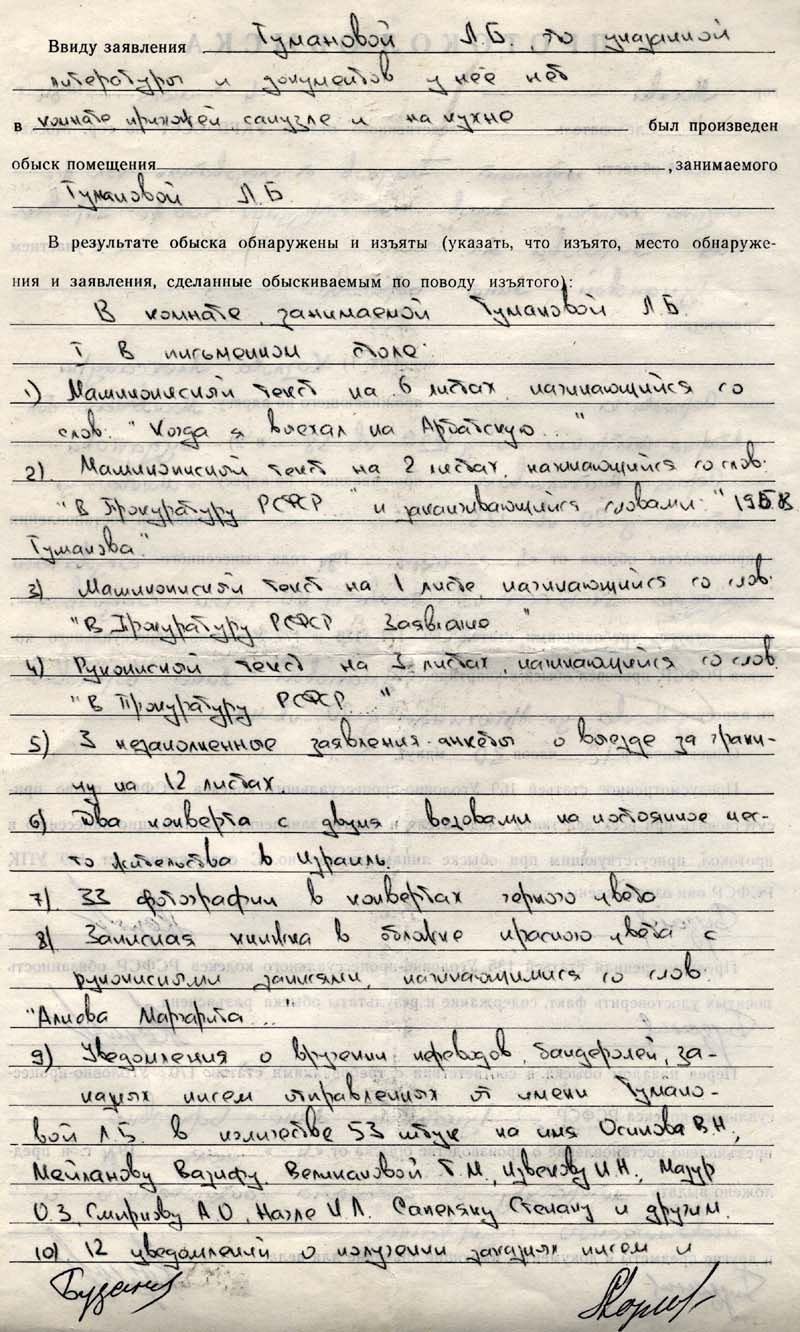 Ввиду заявления Тумановой Л.Б., что указанной
литературы и документов у нее нет
в комнате, прихожей, санузле и на кухне был произведен
обыск помещения , занимаемого
Тумановой Л Б
В результате обыска обнаружены и изъяты (указать, что изъято, место обнаруже-
ния и заявления, сделанные обыскиваемым по поводу изъятого):
В комнате, занимаемой Тумановой Л Б
I В письменном столе:
1) Машинописный текст на 6 листах, начинающийся со
слов: "Когда я въехал на Арбатскую..."
2) Машинописный текст на 2 листах, начинающийся со слов:
"В Прокуратуру РСФСР" и заканчивающийся словами "Л.Б.
Туманова"
3) Машинописный текст на 1 листе, начинающийся со слов:
"В Прокуратуру РСФСР Заявление"
4) Рукописный текст на 3 листах, начинающийся со слов:
"В Прокуратуру РСФСР..."
5) 3 незаполненные заявления-анкеты о выезде за грани-
цу на 12 листах.
6) Два конверта с двумя вызовами на постоянное мес-
то жительства в Израиль.
7) 33 фотографии в конвертах черного цвета
8) Записная книжка в обложке красного цвета с
рукописными записями, начинающимися со слов:
"Алиова Маргарита..."
9) Уведомления о вручении переводов, бандеролей, за-
казных писем отправленных от имени Тумано-
вой Л.Б. в количестве 53 штук на имя Осипова В.Н.,
Мейланову Вазифу, Великановой Т.М., Мазур
О.З, Смирнову А О, Сапеляку Степану и другим.
10) 12 уведомлений о получении заказных писем и